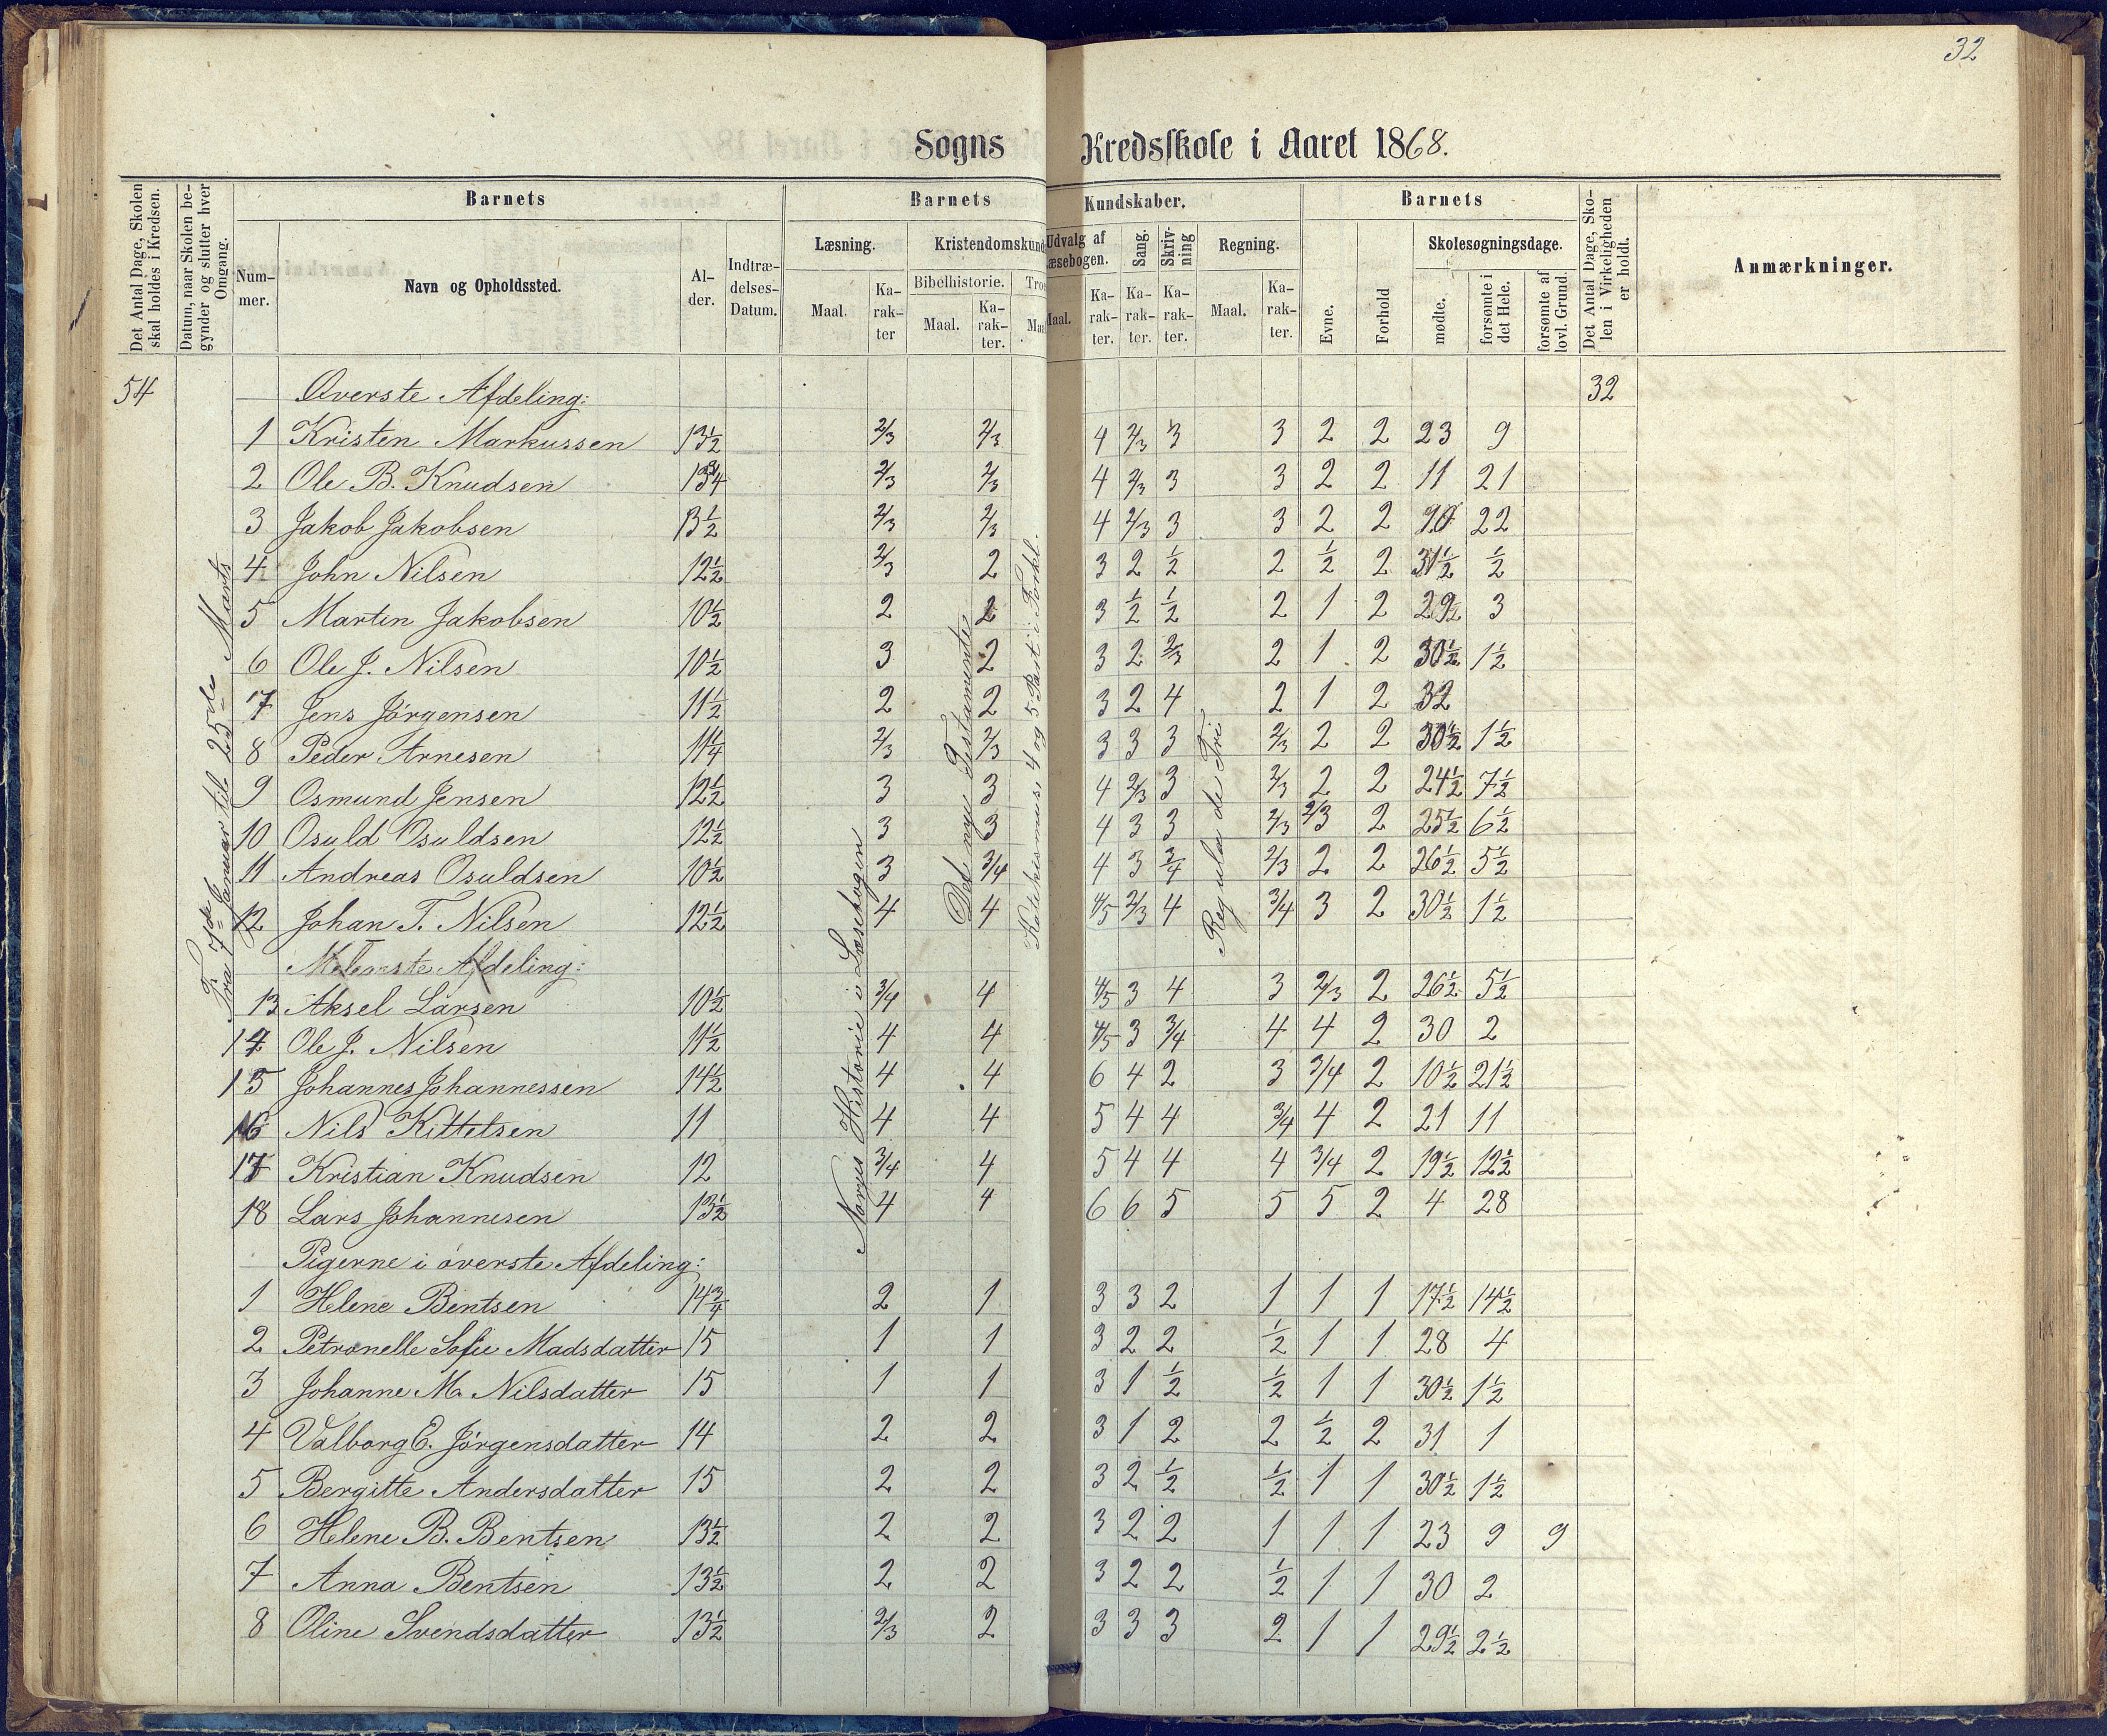 32
Sogns Kredsskole i Aaret 1868.
Det Antal Dage, Skolen skal holdes i Kredsen.
Datum, naar Skolen begynder og slutter hver Omgang.
Barnets
Nummer.
Navn og Opholdssted.
Alder.
Indtrædelses-Datum.
Barnets Kundskaber.
Læsning.
Maal.
Karakter
Kristendomskund
Bibelhistorie.
Maal.
Karakter.
Troes
Maal
Udvalg af Læsebogen.
Maal.
Karakter.
Sang.
Karakter.
Skrivning
Karakter.
Regning.
Maal.
Karakter.
Barnets
Evne.
Forhold
Skolesøgningsdage.
mødte.
forsømte i det Hele.
forsømte af lovl. Grund.
Det Antal Dage, Skolen i Virkeligheden er holdt.
Anmærkninger.
54 Øverste Afdeling: 32
1 Kristen Markussen 13½ 2/3 2/3 4 2/3 3 3 2 2 23 9
2 Ole B. Knudsen 13¾ 2/3 2/3 4 2/3 3 3 2 2 11 21
3 Jakob Jakobsen 13½ 2/3 2/3 4 2/3 3 3 2 2 10 22
4 John Nilsen 12½ 2/3 2 3 2 ½ 2 ½ 2 31½ ½
5 Martin Jakobsen 10½ 2 2 3 ½ ½ 2 1 2 29 3
6 Ole J. Nilsen 10½ 3 2 3 2 2/3 2 1 2 30½ 1½
7 Jens Jörgensen 11½ 2 2 3 2 4 2 1 2 32
8 Peder Arnesen 11¼ 2/3 2/3 3 3 3 2/3 2 2 30½ 1½
9 Osmund Jensen 12½ 3 3 4 2/3 3 2/3 2 2 24½ 7½
10 Osuld Osuldsen 12½ 3 3 4 3 3 2/3 2/3 2 25½ 6½
11 Andreas Osuldsen 10½ 3 3/4 4 3 3/4 2/3 2 2 26½ 5½
12 Johan T. Nilsen 12½ 4 4 4/5 2/3 4 3/4 3 2 30½ 1½
Melemste Afdeling:
13 Aksel Larsen 10½ 3/4 4 4/5 3 4 3 2/3 2 26½ 5½
14 Ole J. Nilsen 11½ 4 4 4/5 3 3/4 4 4 2 30 2
15 Johannes Johannessen 14½ 4 4 6 4 2 3 3/4 2 10½ 21½
16 Nils Kittelsen 11 4 4 5 4 4 3/4 4 2 21 11
17 Kristian Knudsen 12 3/4 4 5 4 4 4 3/4 2 19½ 12½
18 Lars Johannesen 13½ 4 4 6 6 5 5 5 2 4 28
Pigerne i överste Afdeling:
1 Helene Bentsen 14¾ 2 1 3 3 2 1 1 1 17½ 14½
2 Petronelle Sofie Madsdatter 15 1 1 3 2 2 ½ 1 1 28 4
3 Johanne M. Nilsdatter 15 1 1 3 1 ½ ½ 1 1 30½ 1½
4 Valborg E. Jörgensdatter 14 2 2 3 1 2 2 ½ 2 31 1
5 Bergitte Andersdatter 15 2 2 3 2 ½ ½ 1 1 30½ 1½
6 Helene B. Bentsen 13½ 2 2 3 2 2 1 1 1 23 9 9
7 Anna Bentsen 13½ 2 2 3 2 2 ½ 1 1 30 2
8 Oline Svendsdatter 13½ 2/3 2 3 3 3 2 1 1 29½ 2½
Fra 7de Januar til 25de Marts
Norges Historie i Læsebogen
Det nye Testamente
Katekismus, 4 og 5 Part i Forkl.
Regula de Tri